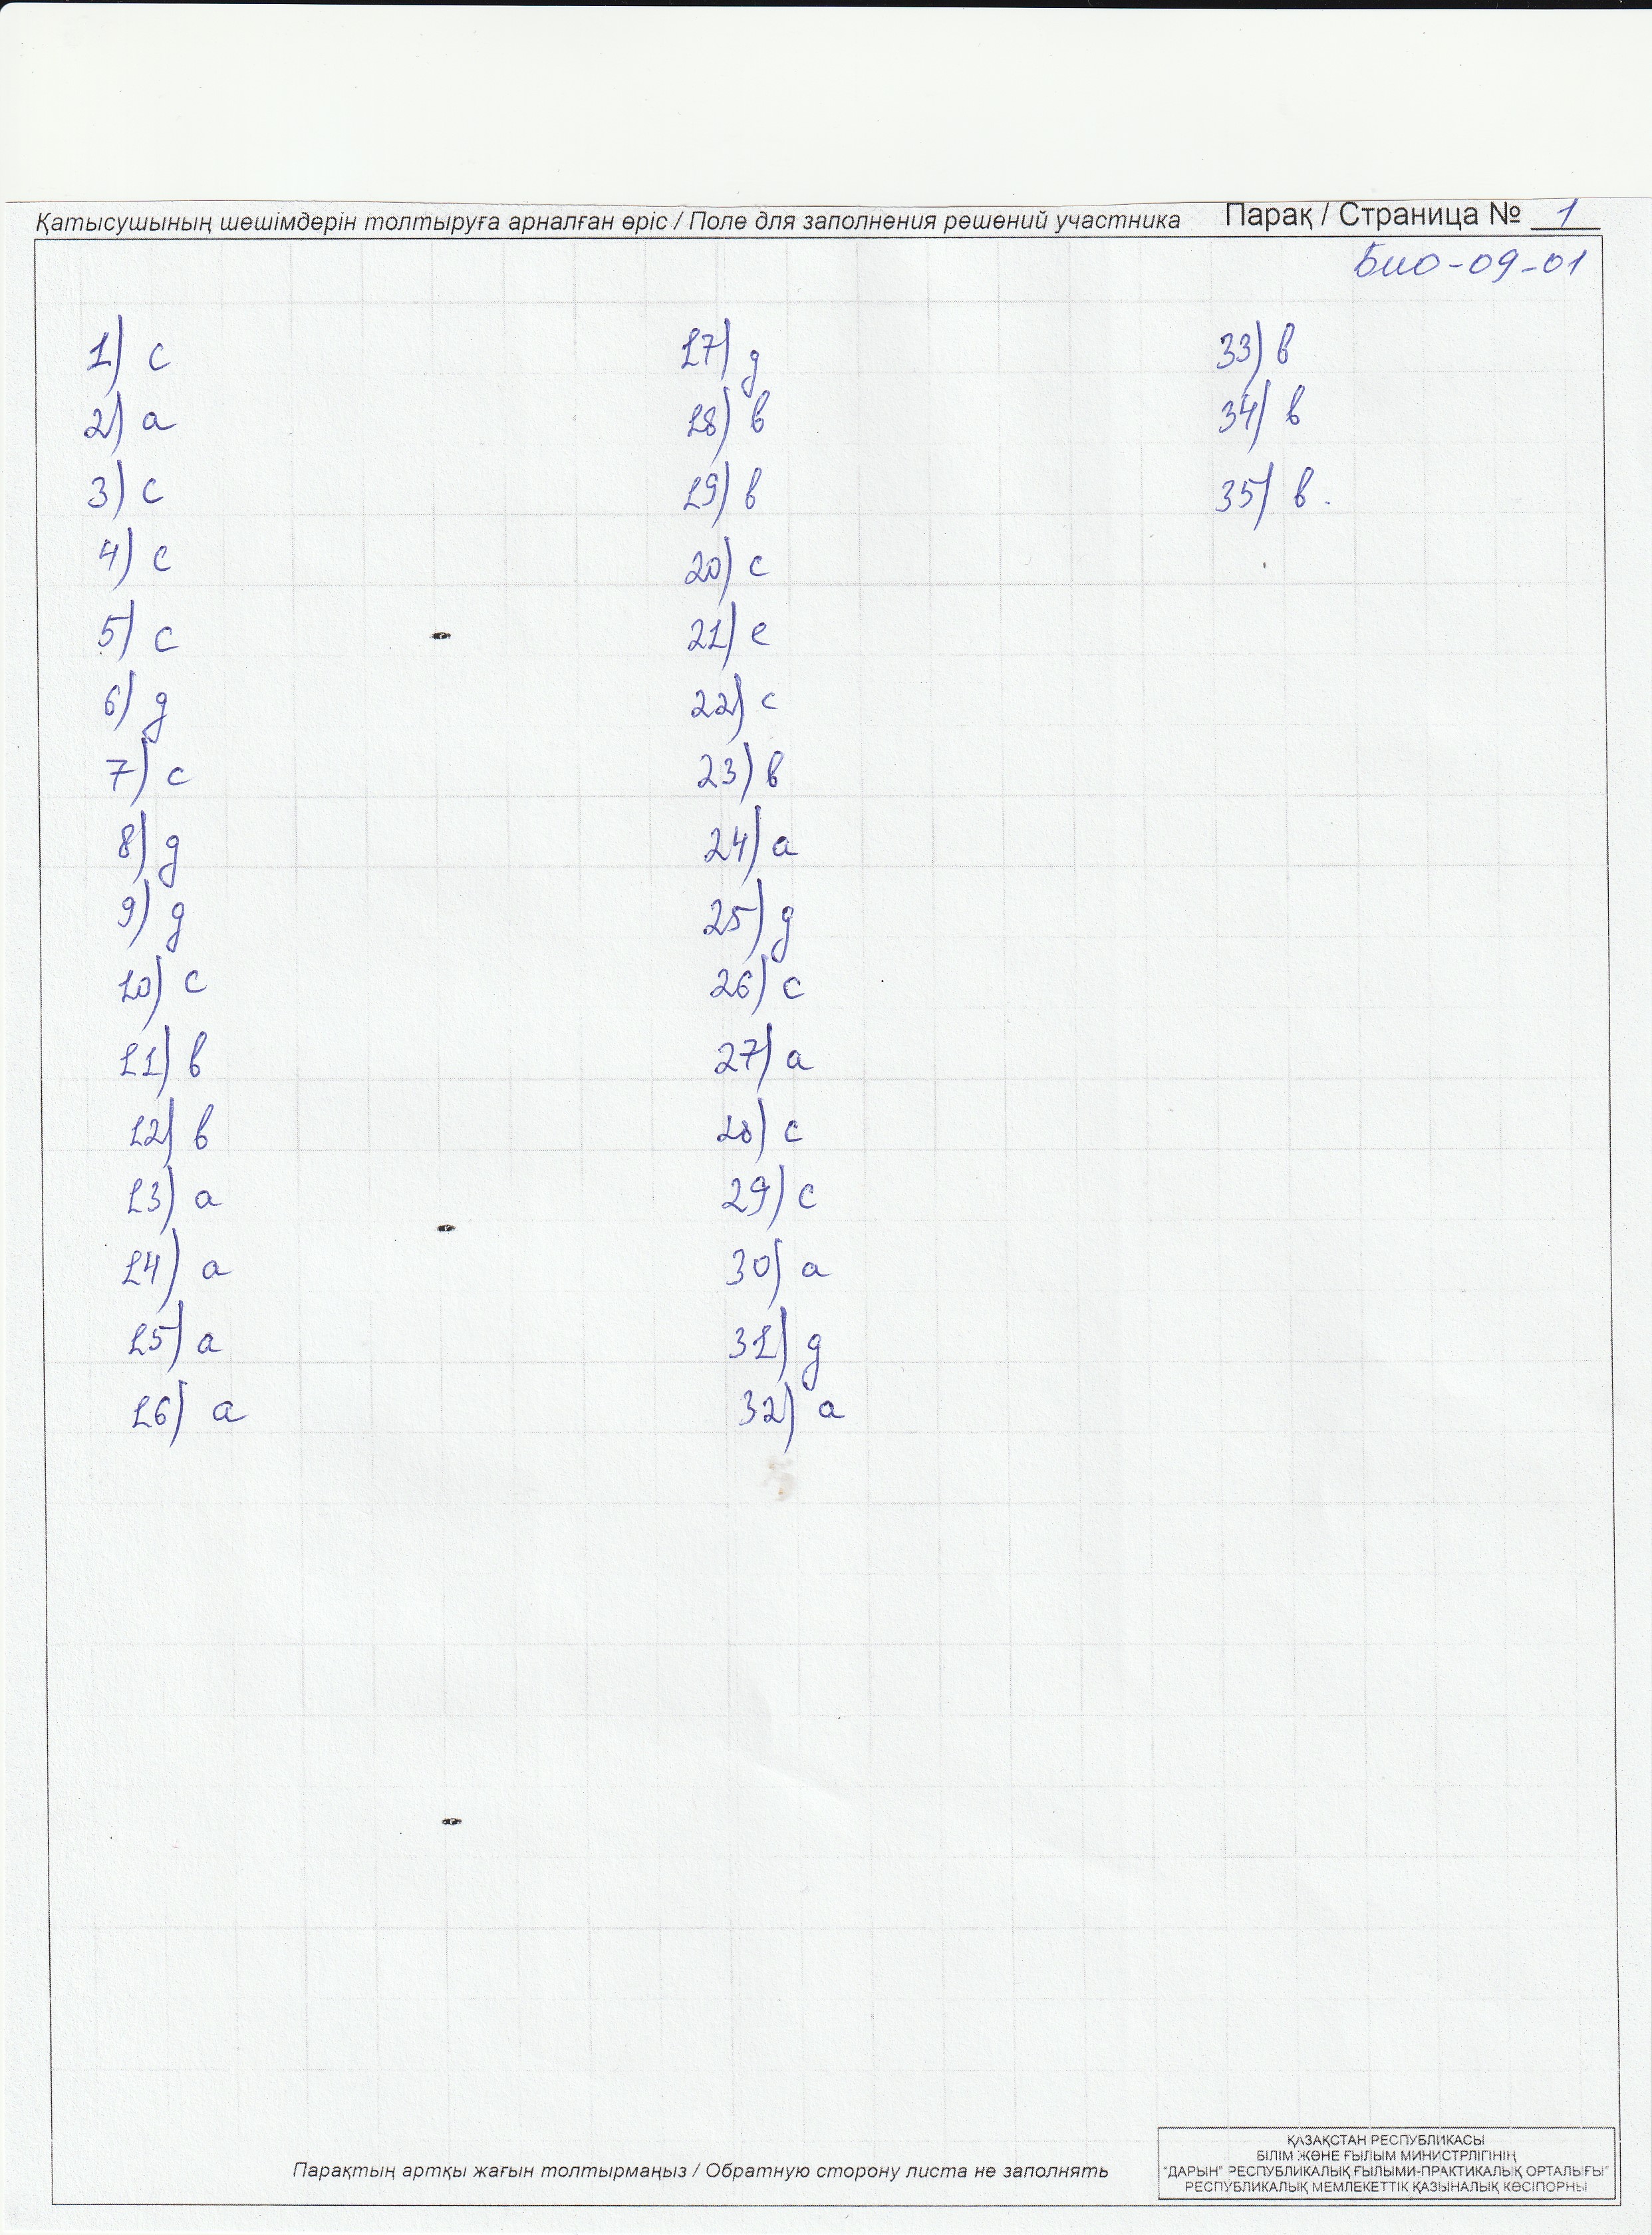 Қатысушының шешімдерін толтыруға арналған өріс / Поле для заполнения решений участника Парақ / Страница № 1
Био-09-01
1) c
2) a
3) c
4) c
5) c
6) g
7) c
8) g
9) g
10) c
11) в
12) в
13) a
14) a
15) a
16) a
17) g
18) в
19) в
20) c
21) e
22) c
23) в
24) a
25) g
26) c
27) a
28) c
29) c
30) a
31) g
32) a
33) в
34) в
35) в.
Парақтың артқы жағын толтырмаңыз / Обратную сторону листа не заполнять
ҚАЗАҚСТАН РЕСПУБЛИКАСЫ
БІЛІМ ЖӘНЕ ҒЫЛЫМ МИНИСТРЛІГІНІҢ
"ДАРЫН" РЕСПУБЛИКАЛЫҚ ҒЫЛЫМИ-ПРАКТИКАЛЫҚ ОРТАЛЫҒЫ"
РЕСПУБЛИКАЛЫҚ МЕМЛЕКЕТТІК ҚАЗЫНАЛЫҚ КӘСІПОРНЫ